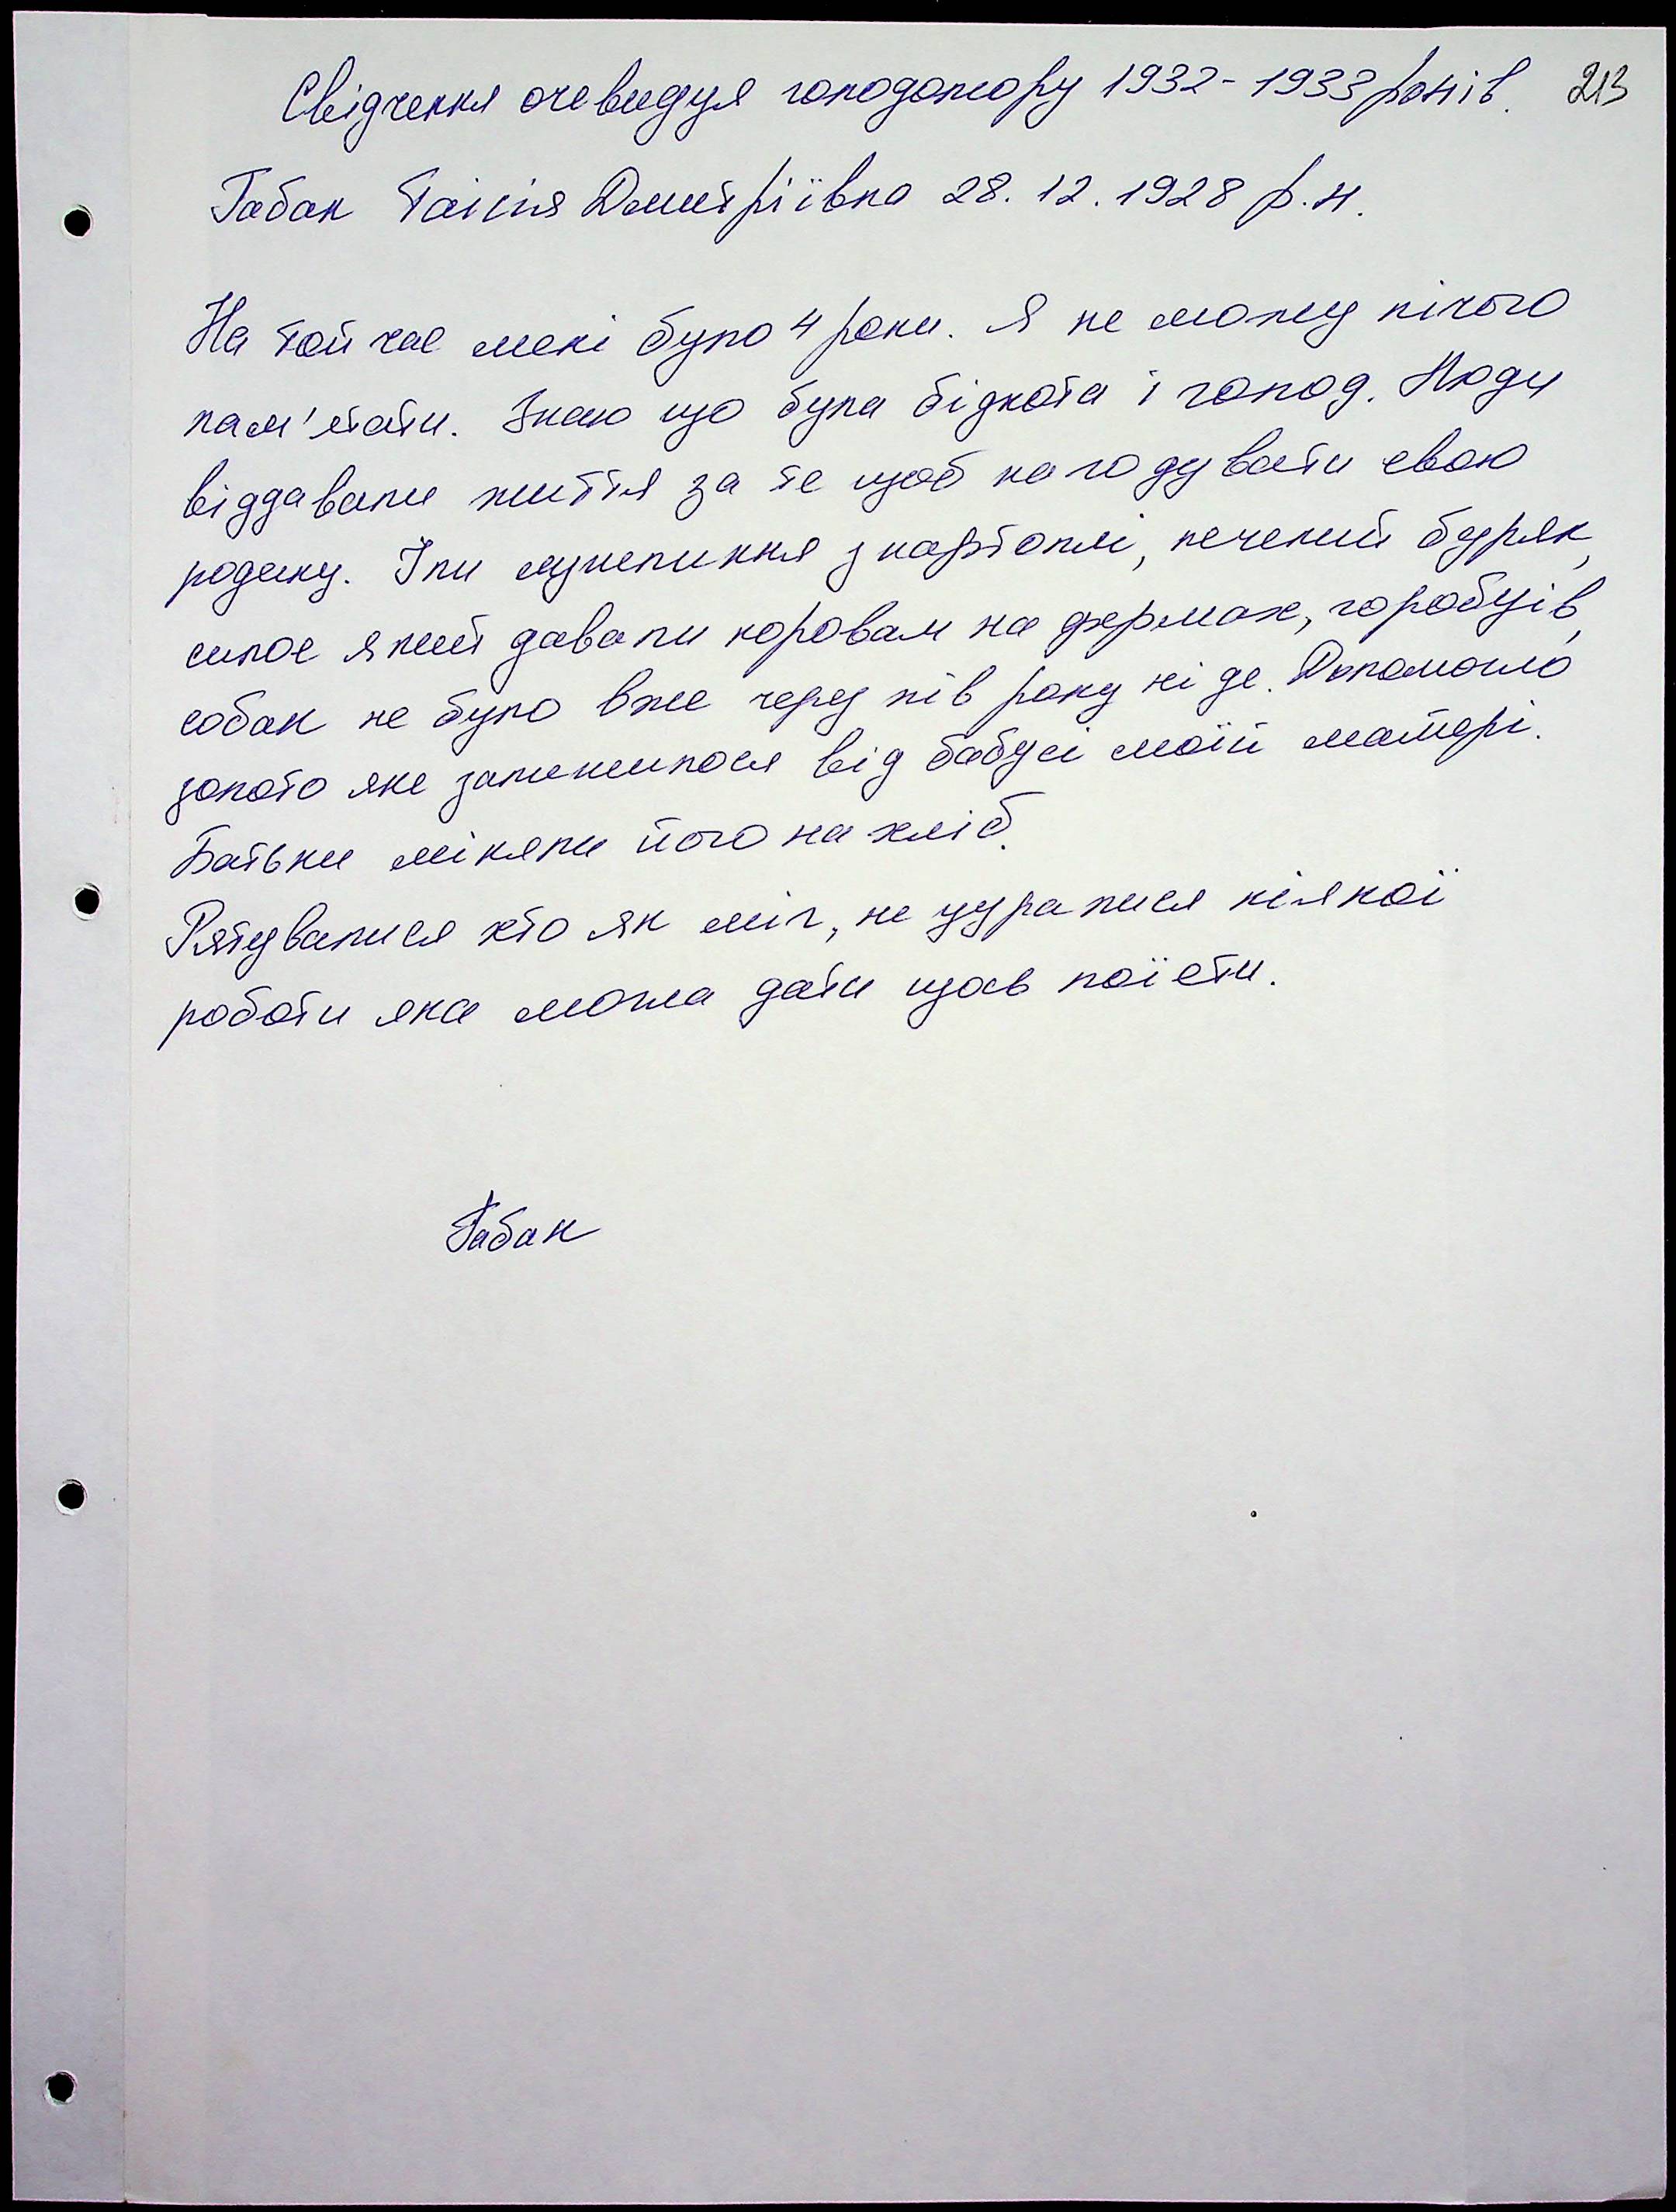 Свідчення очевидця голодомору 1932-1933 років. 213
Габак Таісія Дмитріївна 28.12.1928 р.н.
На той час мені було 4 роки. Я не можу нічого
пам'ятати. Знаю що була біднота і голод. Люди
віддавали життя за те щоб нагодувати свою
родину. Їли лушпиння з картоплі, печений буряк,
силос який давали коровам на фермах, горобців,
собак не було вже через пів року ні де. Допомогло
золото яке залишилося від бабусі моїй матері.
Батьки міняли його на хліб.
Рятувалися хто як міг, не цуралися ніякої
роботи яка могла дати щось поїсти.
Габак